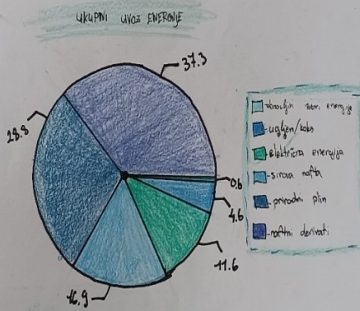 UKUPNI UVOZ ENERGIJE
37.3
28.8
0.6
4.6
11.6
16.9
energije
- ugljen/koks
- električna energija
- sirova nafta
- prirodni plin
- naftni derivati